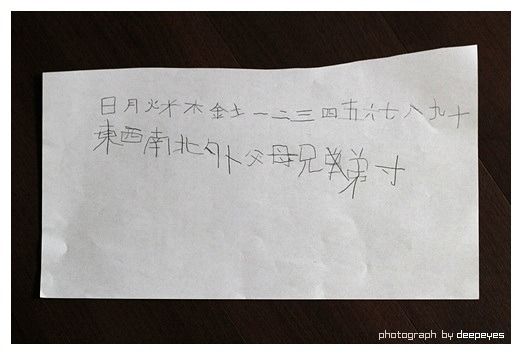 日月火水木金土一二三四五六七八九十
東西南北外父母兄弟寸
photograph by deepeyes